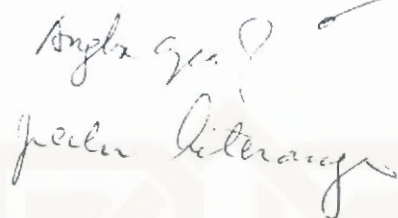 Angka apa?
perlu diterangkan